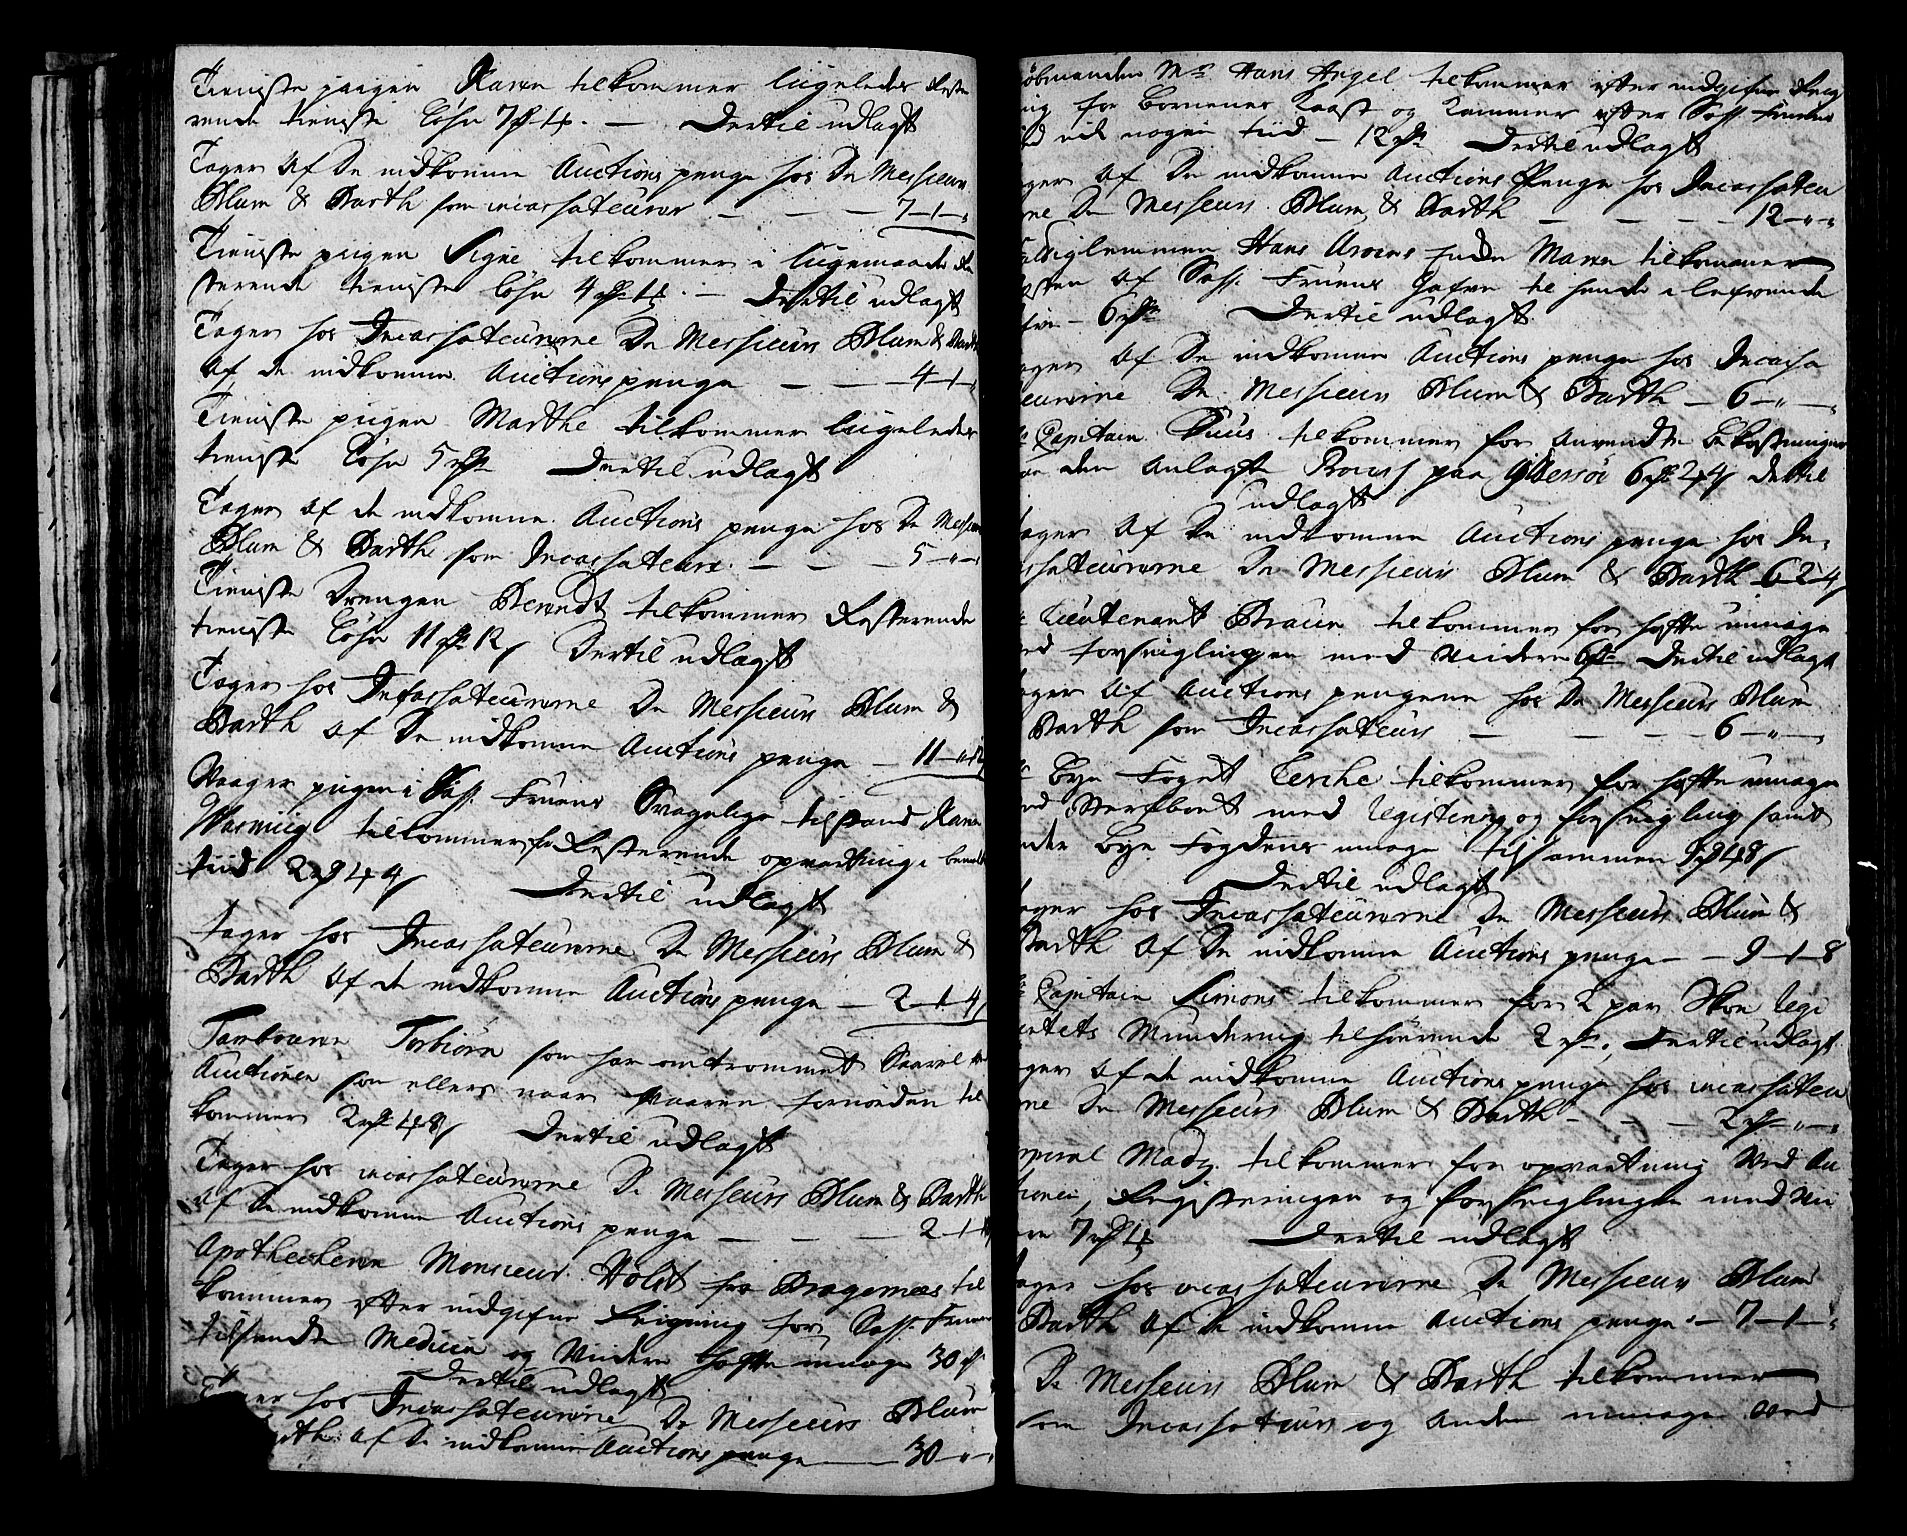 Tieniste piigen Karen tilkommer liigeledes Reste
rende tieniste Løhn 7 rd 1 ort. — Dertil udlagt
Tager af De indkomne Auctions penge hos De Messieurs
Blum & Barth som incassateurer — — — 7-1-"
Tieniste piigen Signe tilkommer i liigemaade Re
sterende tieniste Løhn 4 rd 1 ort. — Dertil udlagt
Tager hos Incassateurerne De Messieurs Blum & Barth
Af de indkomne Auctions penge — — — 4-1-"
Tieniste piigen Marthe tilkommer liigeledes
tieniste Løhn 5 rd Dertil udlagt
Tager af de indkomne Auctions penge hos De Messieurs
Blum & Barth som Incassateurs. — — — 5-"-"
Tieniste Drengen Berndt tilkommer Resterende
tieniste Løhn 11 rd 12 s Dertil udlagt
Tager hos Incassateurerne De Messieurs Blum &
Barth af De indkomne Auctions penge — 11-"-12
Vaager piigen i Sal. Fruens Svagelige tilstand, Karen
tilkommer for Resterende opvartning i bemelte
tiid 2 rd 1 ort 4 s Dertil udlagt
tager hos Incassateurerne De Messieurs Blum &
Barth af de indkomne Auctions penge — 2-1-4
Tambouren Torbiørn som har omtrommet Saavel
Auctionen som ellers naar Vaaren fornøden til
kommer 2 rd 1 ort 8 s Dertil udlagt
Tager hos incassateurerne De Messieurs Blum & Barth
af De indkomne Auctions penge — — — 2-1-8
Apothecheren Monsieur Holst fra Bragernæs til
kommer efter indgifne Reigning for Sal. Fruen
tilsendte Medicin og Videre hafte umage 30 rd
Dertil udlagt
Tager hos Incassateurerne De Messieurs Blum
Barth af De indkomne Auctions penge — 30-"-"
øbmanden Mr. Hans Angel tilkommer efter indgifne Reig
ng for Børnenes Kaast og Kammer efter Sal. Fruens
ud nogen tiid — 12 rd Dertil udlagt
ger af De indkomne Auctions Penge hos Incassateu
ne De Messieurs Blum & Barth — — — — 12-"-"
Hans Hude Maren tilkommer
sten af Sal. Fruens Gafve til hende i lefvende
6 rd Dertil udlagt
ager af De indkomne Auctions penge hos Incassa
eurerne De Messieurs Blum & Barth — 6-"-"
Capitain Kuus tilkommer for anvendte bekostninger
den anlagte Proces paa 6 rd 2 ort 4 s dertil
udlagt
ager af De indkomne Auctions penge hos In-
ssateurerne De Messieurs Blum & Barth 6-2-4
Lieutenant Braun tilkommer for hafte umage
ed forseiglingen med Videre 6 rd Dertil udlagt
ager af Auctions pengene hos De Messieurs Blum
Barth som Incassateurs — — — 6-"-"
Bye Foget Lerche tilkommer for hafte umage
ed Sterfboet med Registering og forseigling samt
nder bye Fogdens umage tilsammen 9 rd 1 ort 8 s
Dertil udlagt
ager hos Incassateurerne De Messieurs Blum &
Barth af De indkomne Auctions penge — 9-1-8
Capitain Simons tilkommer for 2 par Skoe Regi
entets Mundering tilhørende 2 rd, Dertil udlagt
ger af de indkomne Auctions penge hos incassateu
ne De Messieurs Blum & Barth — — — 2 rd-"-"
rporal Madz. tilkommer for opvartning Ved Au
tionen, Registeringen og forseiglingen med Vii
re 7 rd 1 ort Dertil udlagt
tager hos incassateurerne De Messieurs Blum
Barth af De indkomne Auctions penge — 7-1-"
De Messieurs Blum & Barth tilkommer
som Incassateurs og anden umage ved